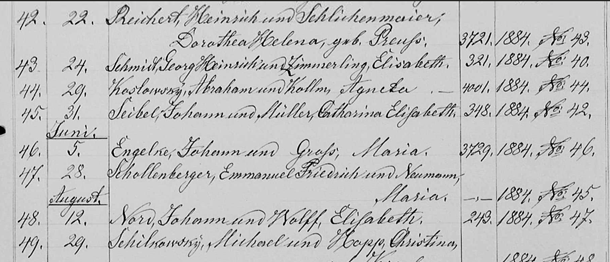 42. 22. Reichert, Heinrich und Schlichenmaier,
Dorothea Helena, geb. Preuss. 3721. 1884. No 43.
43. 24. Schmid, Georg Heinrich und Zimmerling, Elisabeth. 321. 1884. No 40.
44. 29. Koslowsky, Abraham und Kollm, Agneta .— 4001. 1884. No 44.
45. 31. Seibel, Johann und Müller, Catharina Elisabeth. 348. 1884. No 42.
Juni.
46. 5. Engelke, Johann und Gross, Maria. 3729. 1884. No 46.
47. 28. Schollenberger, Emmanuel Friedrich und Neumann,
Maria. —.— 1884. No 45.
August.
48. 12. Nord, Johann und Wolff, Elisabeth. 243. 1884. No 47.
49. 29. Schilkowsky, Michael und Happ, Christina,
1884. No 48.